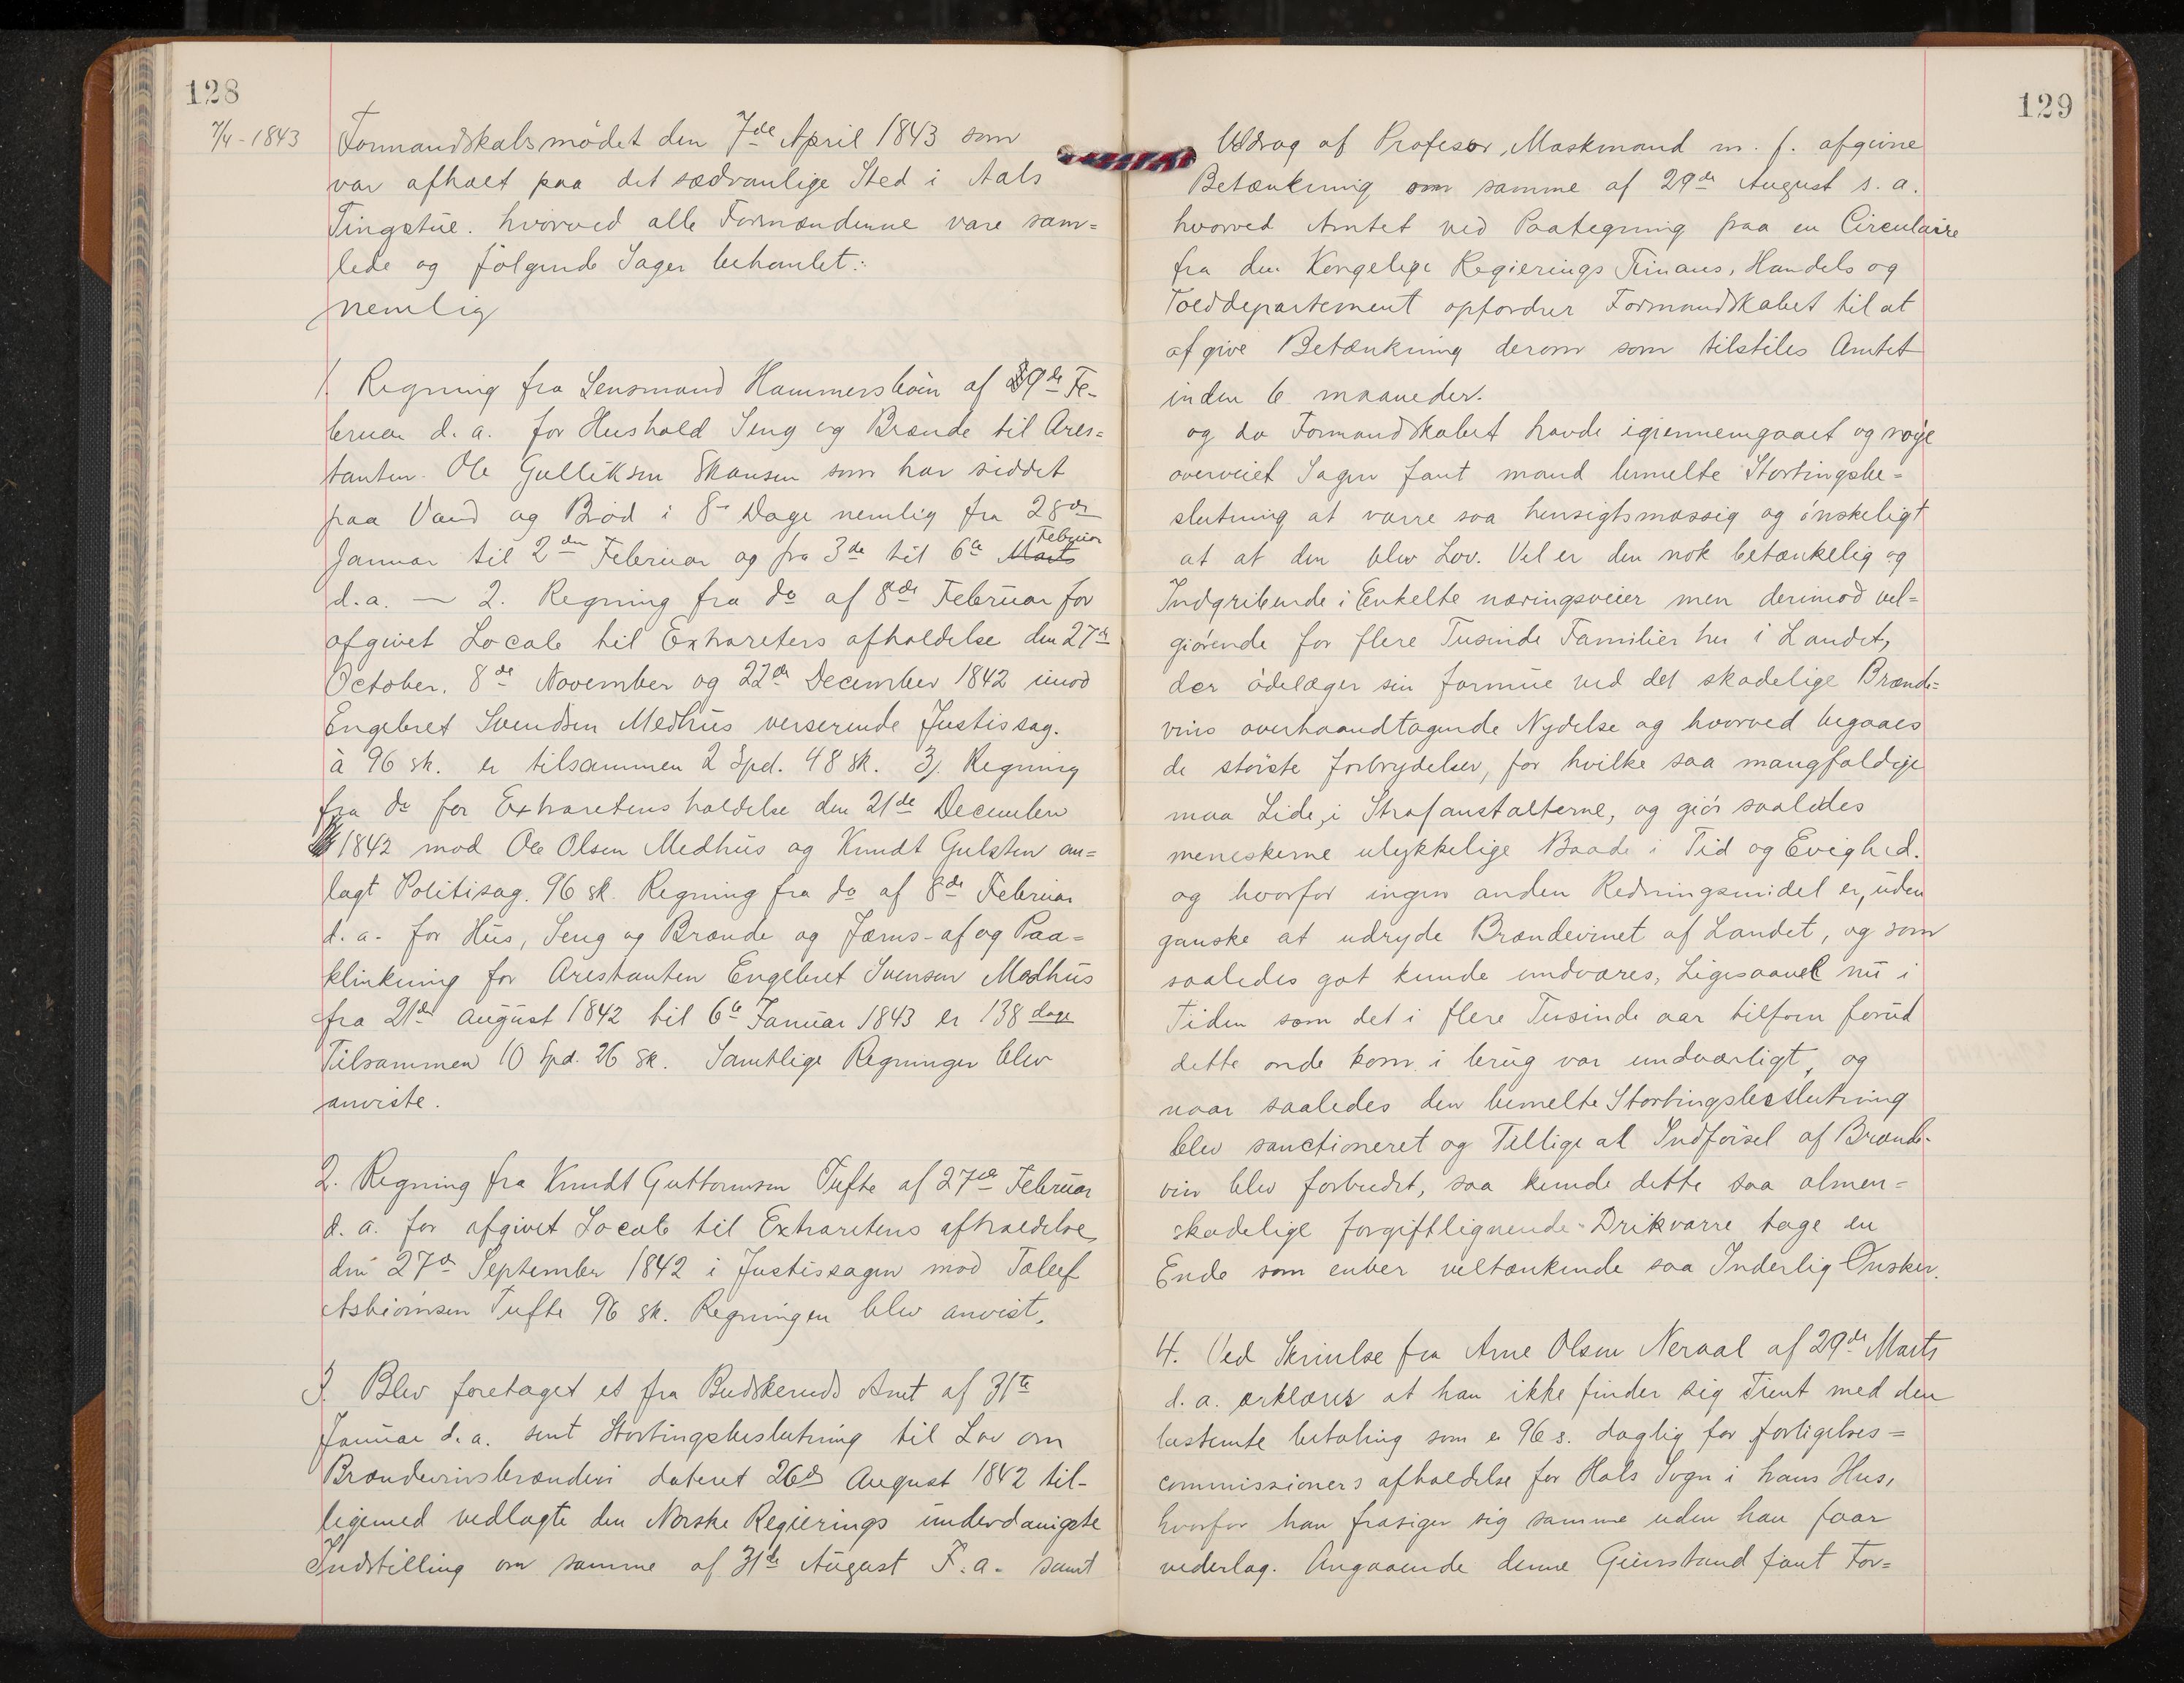 128
7/4 - 1843
Formandskabsmödet den 7de April 1843 som
var afholt paa det sædvanlige Sted i Aals
Tingstue. hvorved alle Formændene vare sam=
lede og fölgende Sager behanlet:
nemlig
1. Regning fra Lensmand Hammersböin af 9de Fe-
bruar d. a. for Hushold Seng og Brænde til Ares=
tanten Ole Gulliksen Skansen som har siddet
paa Vand og Bröd i 8 Dage nemlig fra 28de
Januar til 2den Februar og fra 3de til 6te Marts Februar
d. a. — 2. Regning fra do af 8de Februar for
afgivet Locale til Extrareters afholdelse den 27de
October, 8de November og 22de December 1842 imod
Engebret Svendsen Medhus verserende Justissag.
à 96 sk. er tilsammen 2 Spd. 48 sk. 3). Regning
fra do for Extraretens holdelse den 21de December
1842 mod Ole Olsen Medhus og Knudt Gulsten an=
lagt Politisag. 96 sk. Regning fra do af 8de Februar
d. a. for Hus, Seng og Brænde og Jærns-af og Paa=
klinkning for Arestanten Engebret Svensen Medhus
fra 21de August 1842 til 6te Januar 1843 er 138 dage
Tilsammen 10 Spd. 26 sk. Samtlige Regninger blev
anviste.
2. Regning fra Knudt Guttormsen Tufte af 27de Februar
d. a. for afgivet Locale til Extraretens afholdelse
den 27de September 1842 i Justissagen mod Tolef
Asbiörnsen Tufte 96 sk. Regningen blev anvist.
3. Blev foretaget et fra Budskeruds Amt af 31te
Januar d. a. sent Stortingsbeslutning til Lov om
Brændevinsbrænderi dateret 26de August 1842 til-
ligemed vedlagte den Norske Regierings underdanigste
Indstilling om samme af 31te August F. a. samt
129
Uddrag af Profesor, Maskmand m. f. afgivne
Betænkning om samme af 29de August s. a.
hvorved Amtet ved Paategning paa en Circulaire
fra den Kongelige Regierings Finans, Handels og
Tolddepartement opfordrer Formandskabet til at
afgive Betænkning derom som tilstiles Amtet
inden 6 maaneder.
og da Formandskabet havde igiennemgaaet og nöye
overveiet Sagen fant mand bemelte Stortingsbe=
slutning at være saa hensigtsmæssig og önskeligt
at at den blev Lov. Vel er den nok betænkelig og
Indgribende i Enkelte næringsveier men derimod vel=
giörende for flere Tusinde Familier her i Landet,
der ödelæger sin formue ved det skadelige Brænde=
vins overhaandtagende Nydelse og hvorved begaaes
de störste forbrydelser, for hvilke saa mangfoldige
maa Lide, i Strafanstalterne, og giör saaledes
meneskerne ulykkelige Baade i Tid og Evighed.
og hvorfor ingen anden Redningsmidel er, uden
ganske at udryde Brændevinet af Landet, og som
saaledes got kunde undværes, Ligesaavel nu i
Tiden som det i flere Tusinde aar tilforn forud
dette onde kom i brug var undværligt, og
naar saaledes den bemelte Stortingsbeslutning
blev sanctioneret og Tillige at Indförsel af Brænde-
vin blev forbudet, saa kunde dette saa almen=
skadelige forgiftlignende Drikvarre tage en
Ende som enver veltænkende saa Inderlig Önsker.
4. Ved Skrivelse fra Arne Olsen Neraal af 29de Marts
d. a. ærklæres at han ikke finder sig Tient med den
bestemte betaling som er 96 s. daglig for forligelses=
commissioners afholdelse for Hols Sogn i hans Hus,
hvorfor han frasiger sig samme uden han faar
vederlag. Angaaende denne Gienstand fant For=